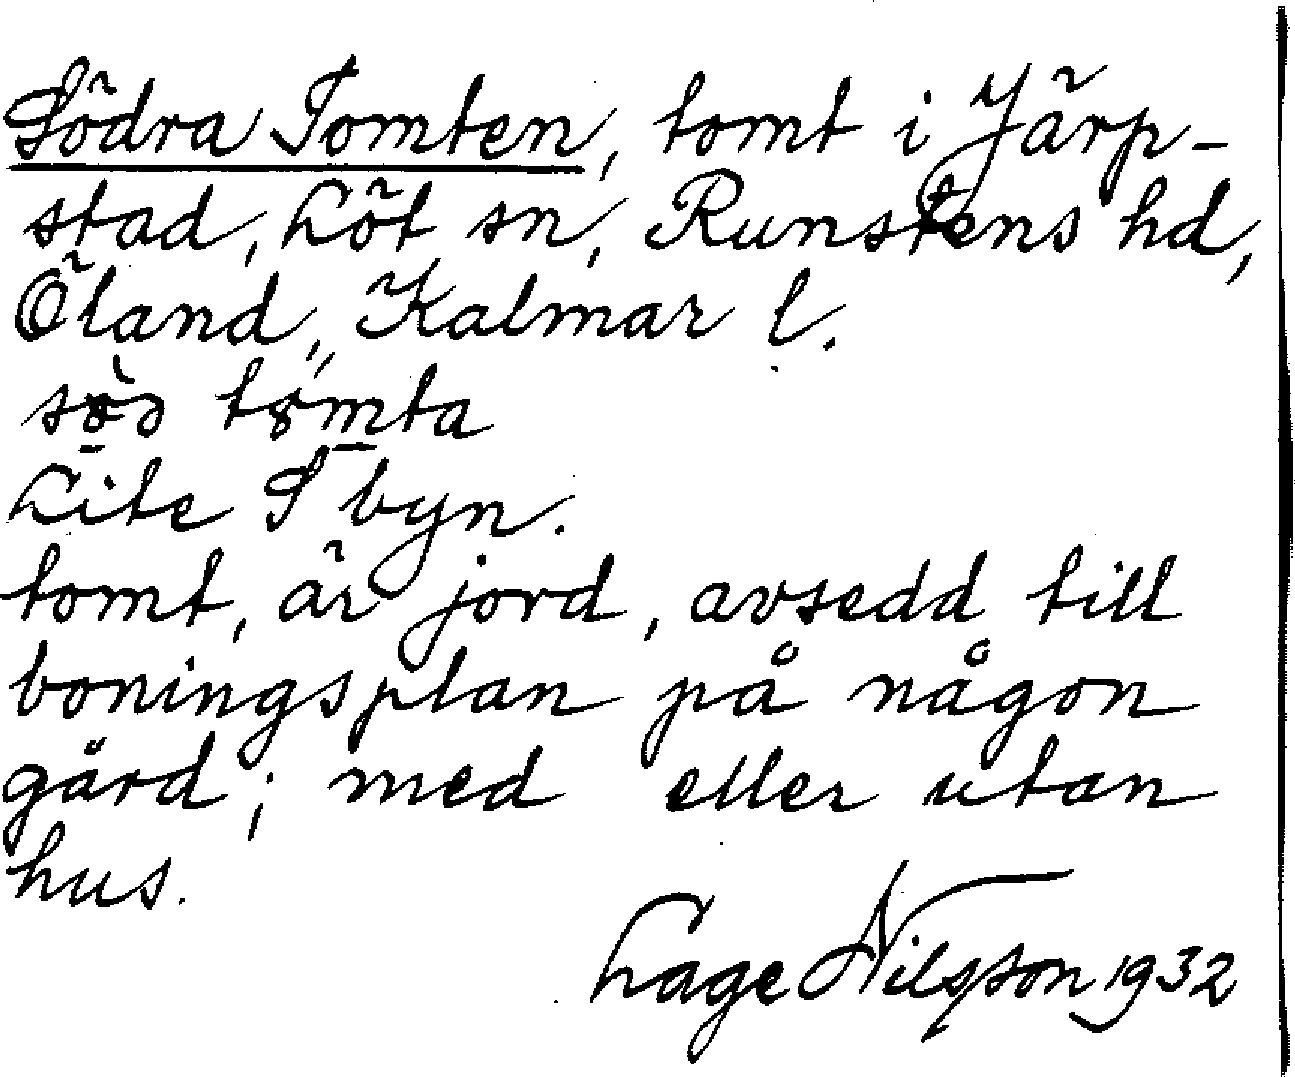 Södra Tomten, tomt i Järp-
stad, Löt sn, Runstens hd,
Öland, Kalmar l.
Lite S byn.
tomt, är jord, avsedd till
boningsplan på någon
gård; med eller utan
hus.
Lage Nilsson 1932